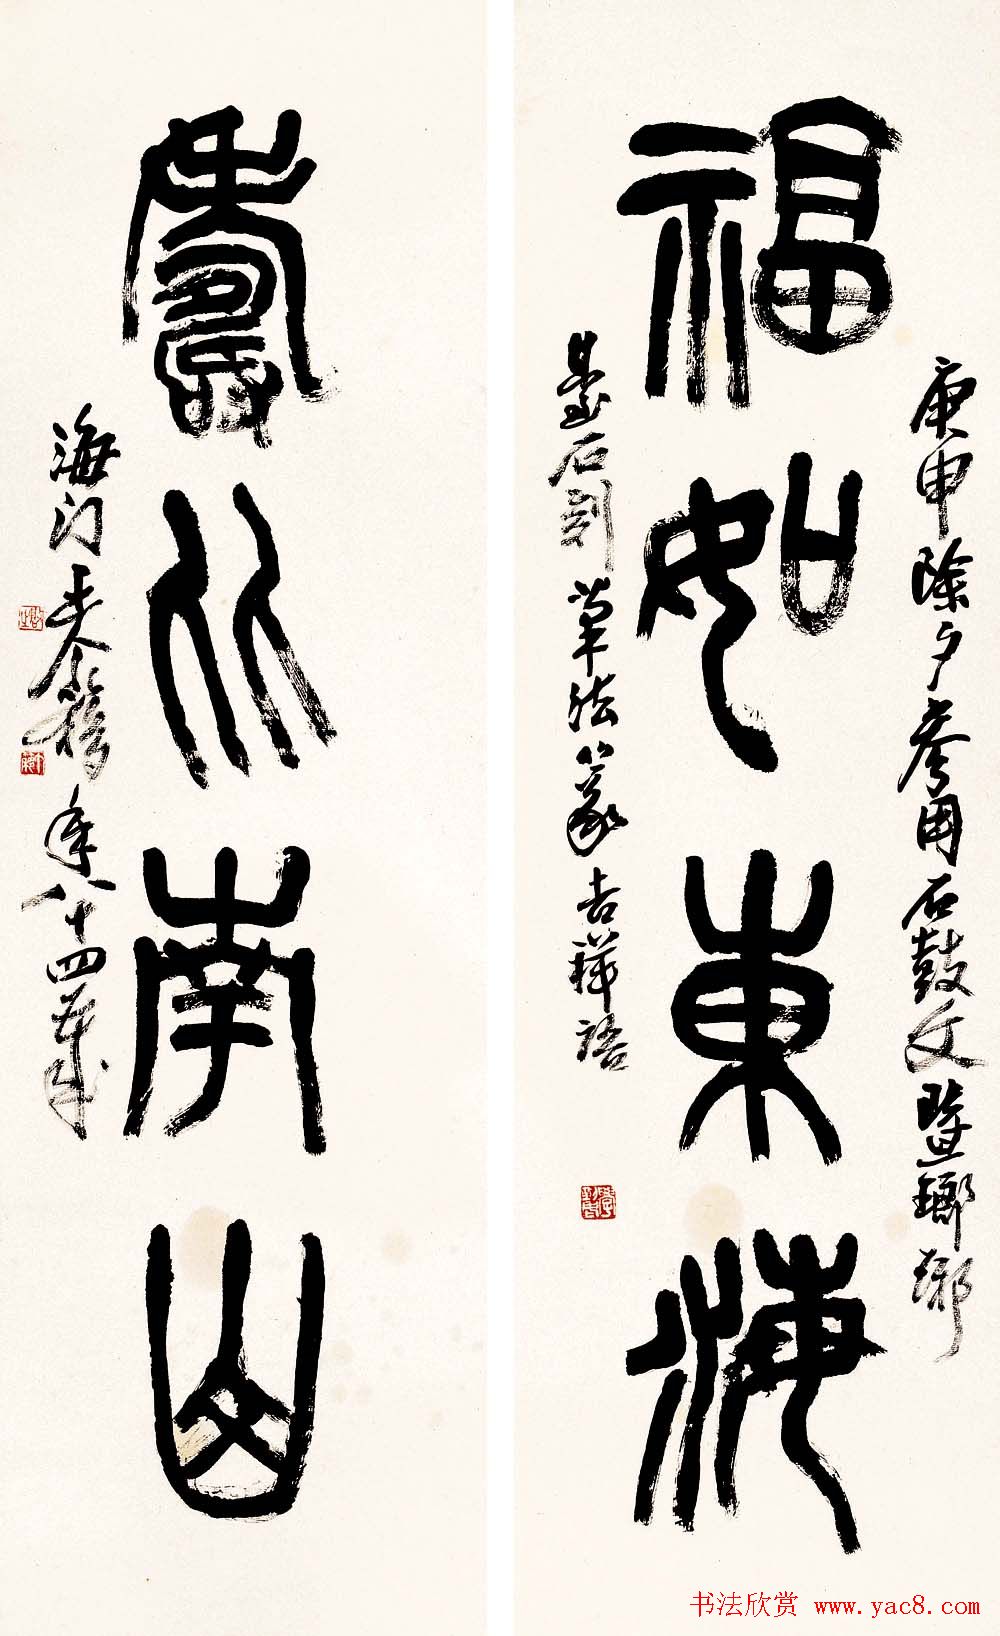 福如東海
庚申除夕參用石鼓文暨鎁琊
臺石刻草法篆吉祥語
壽比南山
海门王个簃年八十四歲
书法欣赏 www.yac8.com